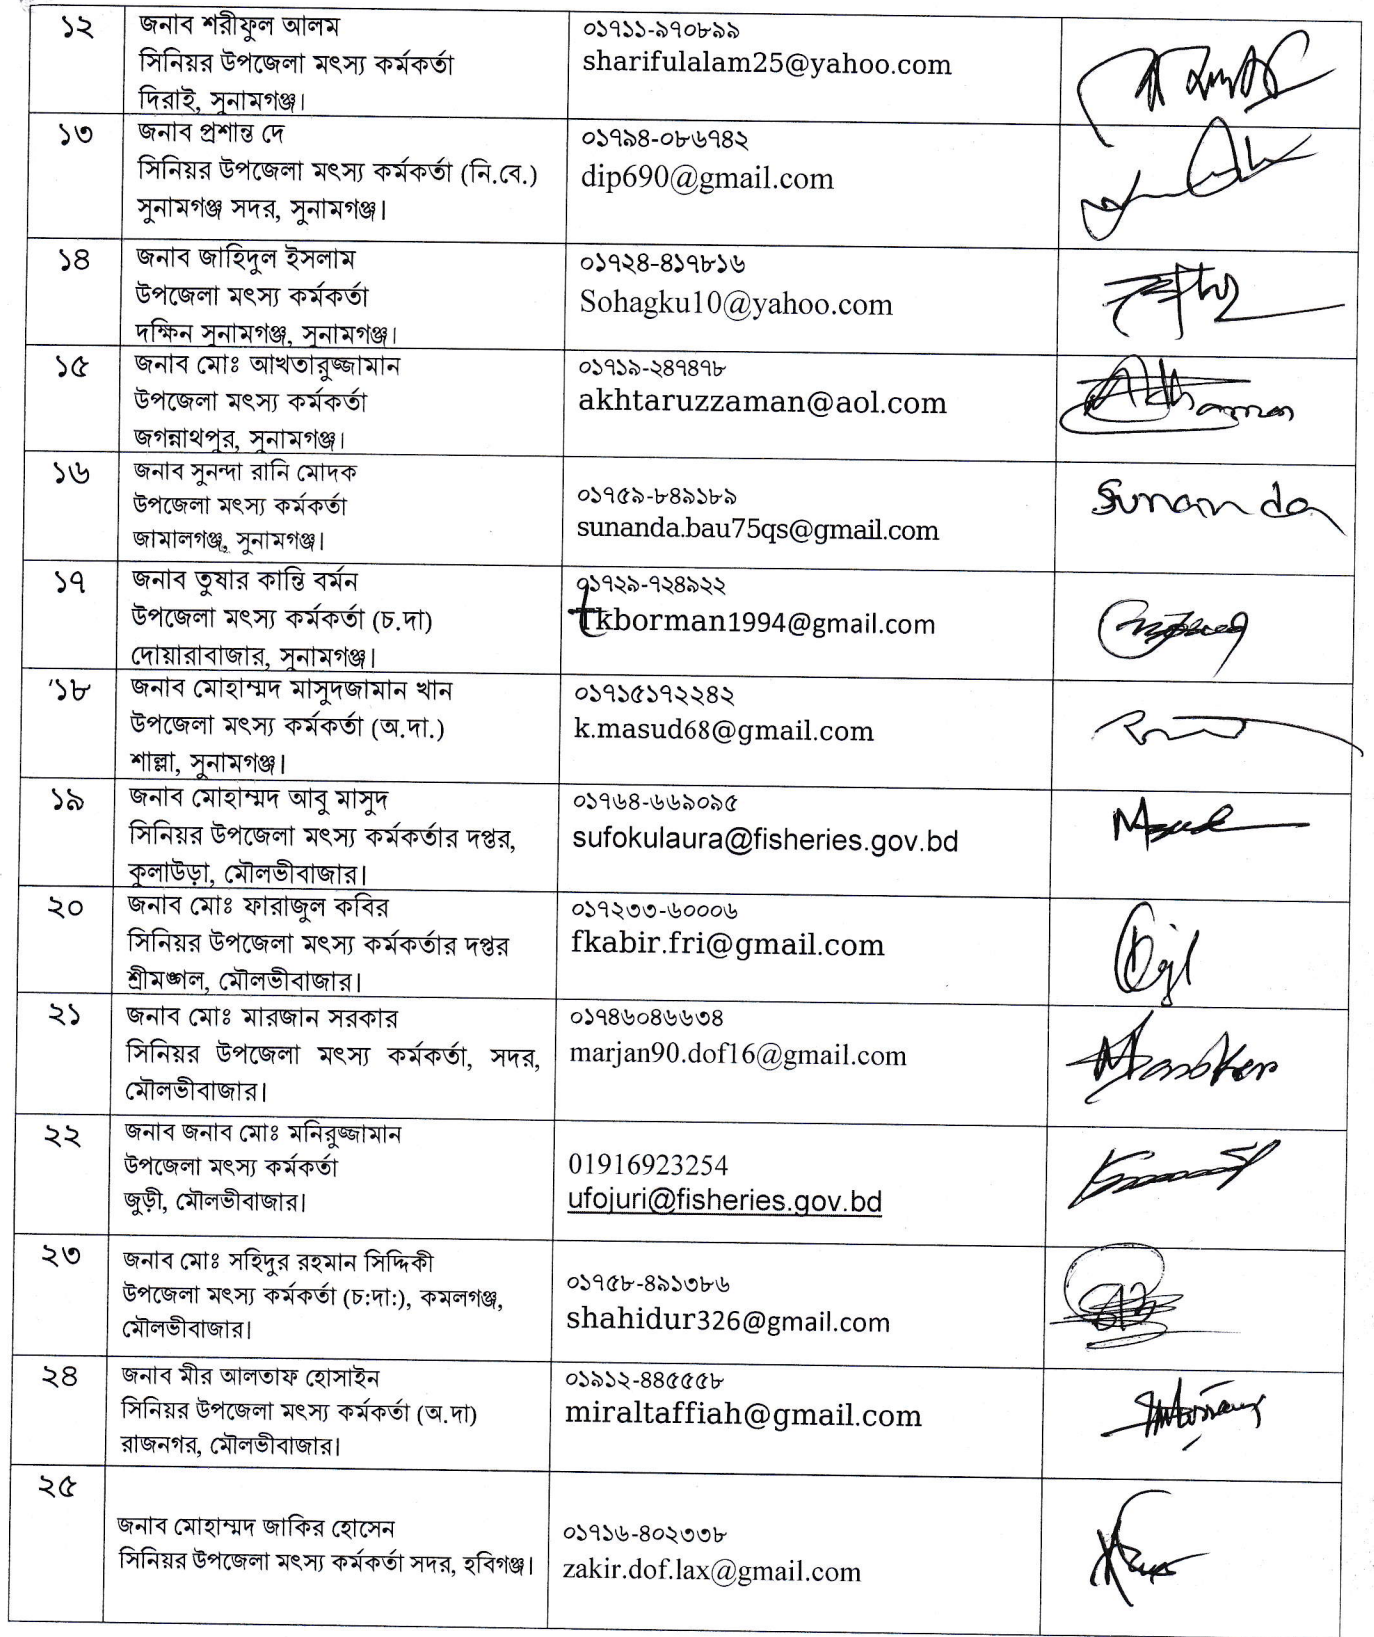 ১২
জনাব শরীফুল আলম
সিনিয়র উপজেলা মৎস্য কর্মকর্তা
দিরাই, সুনামগঞ্জ।
০১৭১১-৯৭০৮৯৯
sharifulalam25@yahoo.com
১৩
জনাব প্রশান্ত দে
সিনিয়র উপজেলা মৎস্য কর্মকর্তা (নি.বে.)
সুনামগঞ্জ সদর, সুনামগঞ্জ।
০১৭৯৪-০৮৬৭৪২
dip690@gmail.com
১৪
জনাব জাহিদুল ইসলাম
উপজেলা মৎস্য কর্মকর্তা
দক্ষিন সুনামগঞ্জ, সুনামগঞ্জ।
০১৭২৪-৪১৭৮১৬
Sohagku10@yahoo.com
১৫
জনাব মোঃ আখতারুজ্জামান
উপজেলা মৎস্য কর্মকর্তা
জগন্নাথপুর, সুনামগঞ্জ।
০১৭১৯-২৪৭৪৭৮
akhtaruzzaman@aol.com
১৬
জনাব সুনন্দা রানি মোদক
উপজেলা মৎস্য কর্মকর্তা
জামালগঞ্জ, সুনামগঞ্জ।
০১৭৫৯-৮৪৯১৮৯
sunanda.bau75qs@gmail.com
Sunanda
১৭
জনাব তুষার কান্তি বর্মন
উপজেলা মৎস্য কর্মকর্তা (চ.দা)
দোয়ারাবাজার, সুনামগঞ্জ।
০১৭২৯-৭২৪৯২২
tkborman1994@gmail.com
১৮
জনাব মোহাম্মদ মাসুদজামান খান
উপজেলা মৎস্য কর্মকর্তা (অ.দা.)
শাল্লা, সুনামগঞ্জ।
০১৭১৫১৭২২৪২
k.masud68@gmail.com
১৯
জনাব মোহাম্মদ আবু মাসুদ
সিনিয়র উপজেলা মৎস্য কর্মকর্তার দপ্তর,
কুলাউড়া, মৌলভীবাজার।
০১৭৬৪-৬৬৯০৯৫
sufokulaura@fisheries.gov.bd
২০
জনাব মোঃ ফারাজুল কবির
সিনিয়র উপজেলা মৎস্য কর্মকর্তার দপ্তর
শ্রীমঙ্গল, মৌলভীবাজার।
০১৭২৩৩-৬০০০৬
fkabir.fri@gmail.com
২১
জনাব মোঃ মারজান সরকার
সিনিয়র উপজেলা মৎস্য কর্মকর্তা, সদর,
মৌলভীবাজার।
০১৭৪৬০৪৬৬৩৪
marjan90.dof16@gmail.com
২২
জনাব জনাব মোঃ মনিরুজ্জামান
উপজেলা মৎস্য কর্মকর্তা
জুড়ী, মৌলভীবাজার।
01916923254
ufojuri@fisheries.gov.bd
২৩
জনাব মোঃ সহিদুর রহমান সিদ্দিকী
উপজেলা মৎস্য কর্মকর্তা (চ:দা:), কমলগঞ্জ,
মৌলভীবাজার।
০১৭৫৮-৪৯১৩৮৬
shahidur326@gmail.com
২৪
জনাব মীর আলতাফ হোসাইন
সিনিয়র উপজেলা মৎস্য কর্মকর্তা (অ.দা)
রাজনগর, মৌলভীবাজার।
০১৯১২-৪৪৫৫৫৮
miraltaffiah@gmail.com
২৫
জনাব মোহাম্মদ জাকির হোসেন
সিনিয়র উপজেলা মৎস্য কর্মকর্তা সদর, হবিগঞ্জ।
০১৭১৬-৪০২৩৩৮
zakir.dof.lax@gmail.com